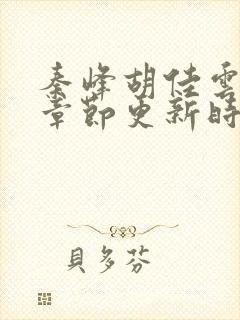 秦峰胡佳雲
章節更新時
貝多芬